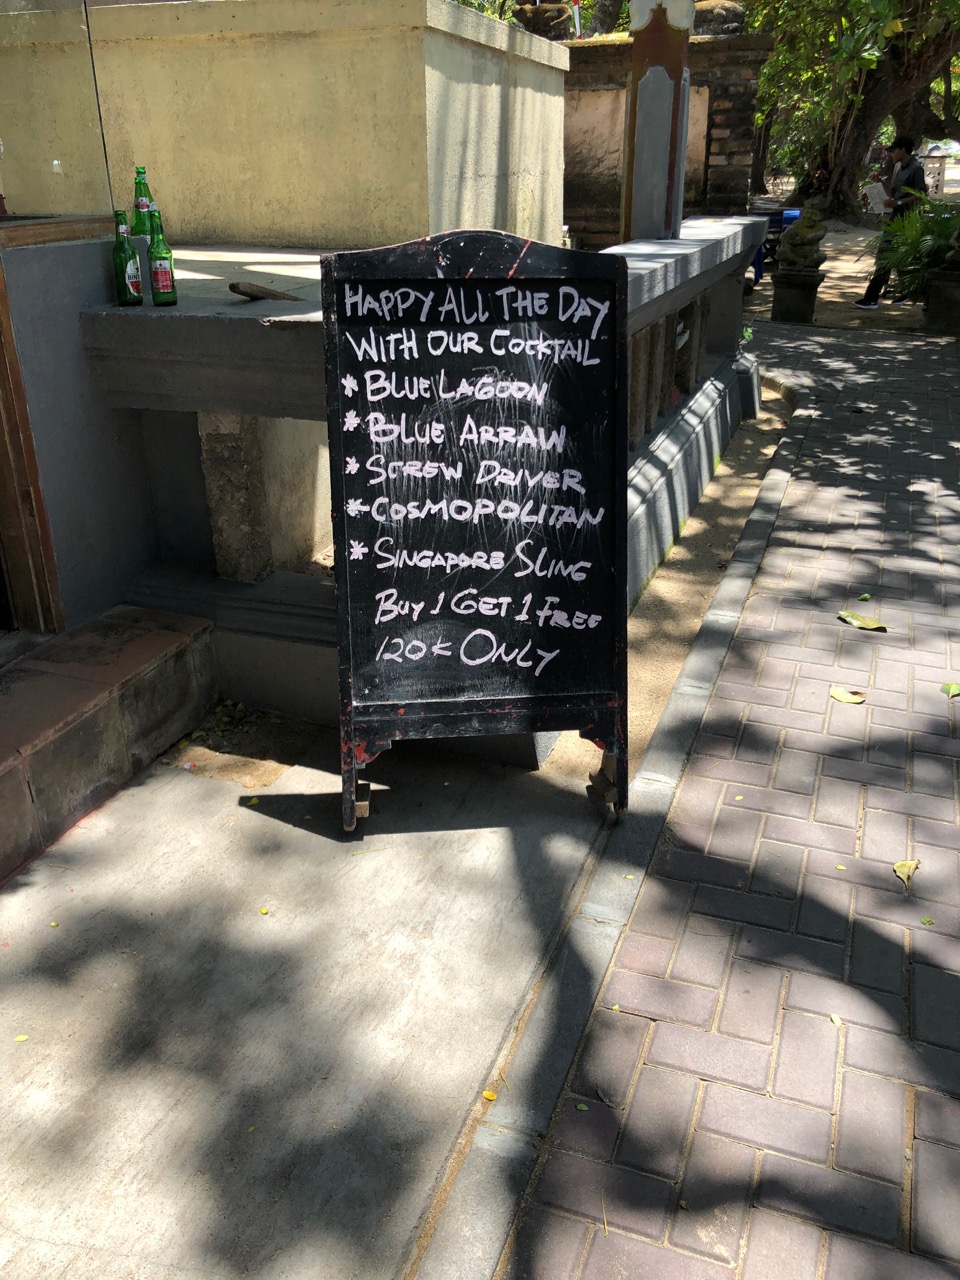 HAPPY ALL THE DAY
WITH OUR COCKTAIL
* BLUE LAGOON
* BLUE ARRAW
* SCREW DRIVER
* COSMOPOLITAN
* SINGAPORE SLING
BUY 1 GET 1 FREE
120K ONLY